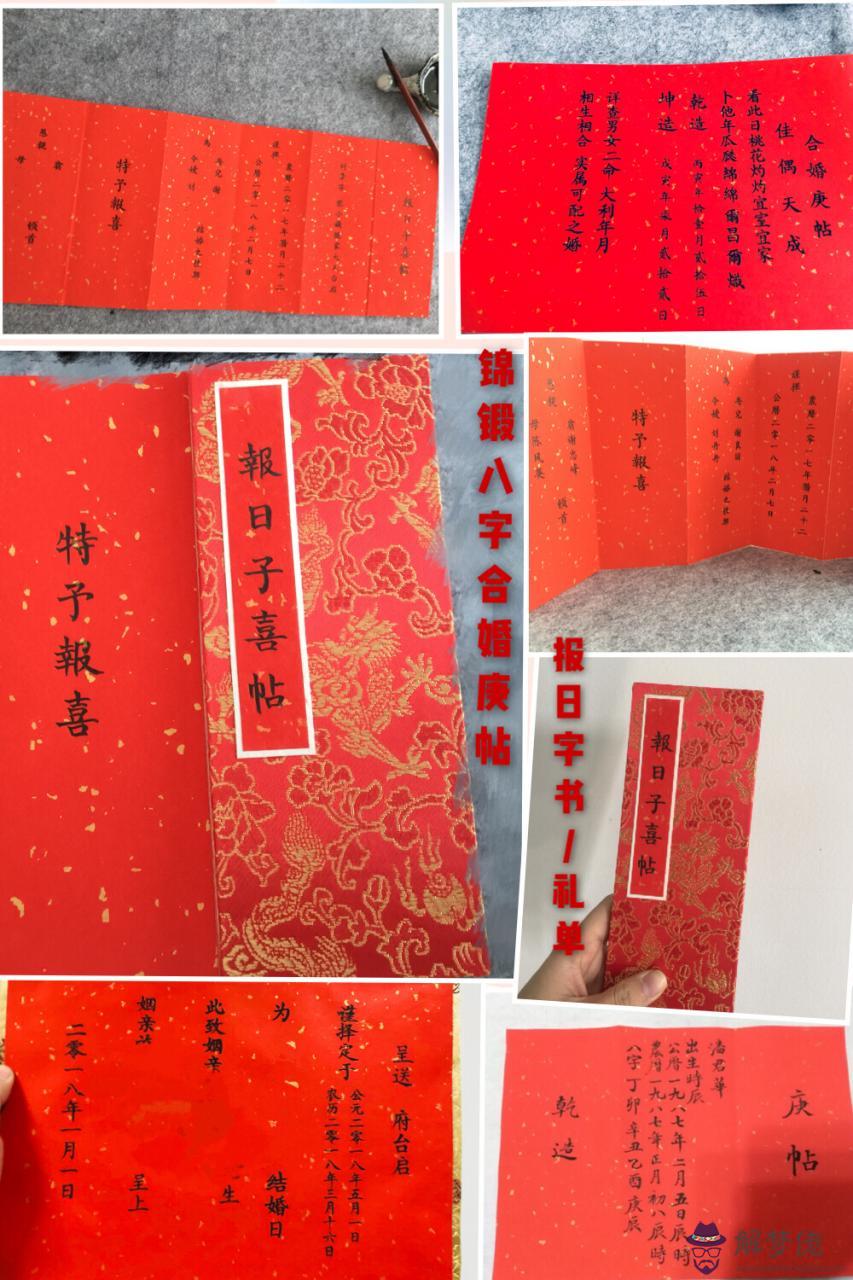 特予報喜
頓首
合婚庚帖
佳偶天成
看此日桃花灼灼宜室宜家
卜他年瓜瓞綿綿爾昌爾熾
乾造 丙寅年拾壹月貳拾伍日
坤造 戊寅年柒月貳拾貳日
詳查男女二命 大利年月
相生相合 实属可配之婚
報日子喜帖
特予報喜
錦鍛八字合婚庚帖
謹擇
農曆二零一七年臘月二十二
公曆二零一八年二月七日
特予報喜
頓首
报日字书/礼单
報日子喜帖
呈送 府台启
谨择定于
公元二零一八年五月一日
农历二零一八年三月十六日
为 结婚日
此致姻亲 生
姻亲 呈上
二零一八年一月一日
庚帖
乾造
潘君華
出生時辰
公曆一九八七年二月五日辰時
農曆一九八七年正月初八辰時
八字丁卯辛丑乙酉庚辰
解梦佬